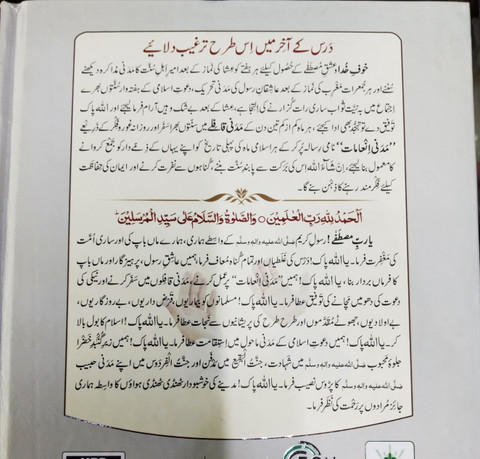 دَرْس کے آخر میں اِس طرح ترغیب دلائیے
خوفِ خُدا و عشقِ مصطفٰے کے حُصُول کیلئے ہر ہفتے کو عشا کی نَماز کے بعد امیرِ اہلِ سنّت کا مَدَنی مذاکرہ دیکھنے
سننے اور ہر جُمعرات مغرب کی نَماز کے بعد عاشقانِ رسول کی مَدَنی تحریک، دعوتِ اسلامی کے ہفتہ وار سنّتوں بھرے
اِجتِماع میں بہ نیّتِ ثواب ساری رات گزارنے کی اِلتجا ہے، عشا کے بعد بے شک وہیں آرام فرما لیجئے اور اللہ پاک
توفیق دے تو تہجّد بھی ادا کیجئے، ہر ماہ کم از کم تین دن کے مَدَنی قافلے میں سنّتوں بھرا سفر اور روزانہ غور و فکر کے ذریعے
”مَدَنی اِنعامات“ نامی رسالہ پُر کر کے ہر اسلامی ماہ کی پہلی تاریخ کو اپنے یہاں کے ذمّے دار کو جَمْع کروانے
کا معمول بنا لیجئے، اِنْ شَآءَ اللہ اِس کی بَرَکت سے پابندِ سنّت بننے، گناہوں سے نفرت کرنے اور ایمان کی حفاظت
کیلئے فکر مند رہنے کا ذِہن بنے گا۔
اَلْحَمْدُ لِلّٰهِ رَبِّ الْعٰلَمِیْنَ ○ وَالصَّلٰوةُ وَالسَّلَامُ عَلٰی سَیِّدِ الْمُرْسَلِیْنَ ط
یا ربِّ مصطَفٰے! رسولِ کریم صَلَّی اللہ علیہ واٰلہٖ وسلَّم کے واسطے ہماری، ہمارے ماں باپ کی اور ساری اُمّت
کی مغفرت فرما۔ یا اللہ پاک! دَرْس کی غَلَطیاں اور تمام گناہ مُعاف فرما، ہمیں عاشقِ رسول، پرہیزگار اور ماں باپ
کا فرماں بردار بنا۔ یا اللہ پاک! ہمیں ”مَدَنی اِنعامات“ پر عمل کرنے، مَدَنی قافلوں میں سَفَر کرنے اور نیکی کی
دعوت کی دھومیں مچانے کی توفیق عطا فرما۔ یا اللہ پاک! مسلمانوں کو بیماریوں، قرض داریوں، بے روزگاریوں،
بے اولادیوں، جھوٹے مُقدّموں اور طرح طرح کی پریشانیوں سے نَجات عطا فرما۔ یا اللہ پاک! اسلام کا بول بالا
کر۔ یا اللہ پاک! ہمیں دعوتِ اسلامی کے مَدَنی ماحول میں اِستِقامت عطا فرما۔ یا اللہ پاک! ہمیں زیرِ گُنبدِ خضرا
جلوۂ محبوب صَلَّی اللہ علیہ واٰلہٖ وسلَّم میں شہادت، جنّتُ الْبَقیع میں مدفن اور جنّتُ الْفِردَوس میں اپنے مَدَنی حبیب
صَلَّی اللہ علیہ واٰلہٖ وسلَّم کا پڑوس نصیب فرما۔ یا اللہ پاک! مدینے کی خوشبودار ٹھنڈی ٹھنڈی ہواؤں کا واسطہ ہماری
جائز مُرادوں پر رَحْمت کی نَظَر فرما۔